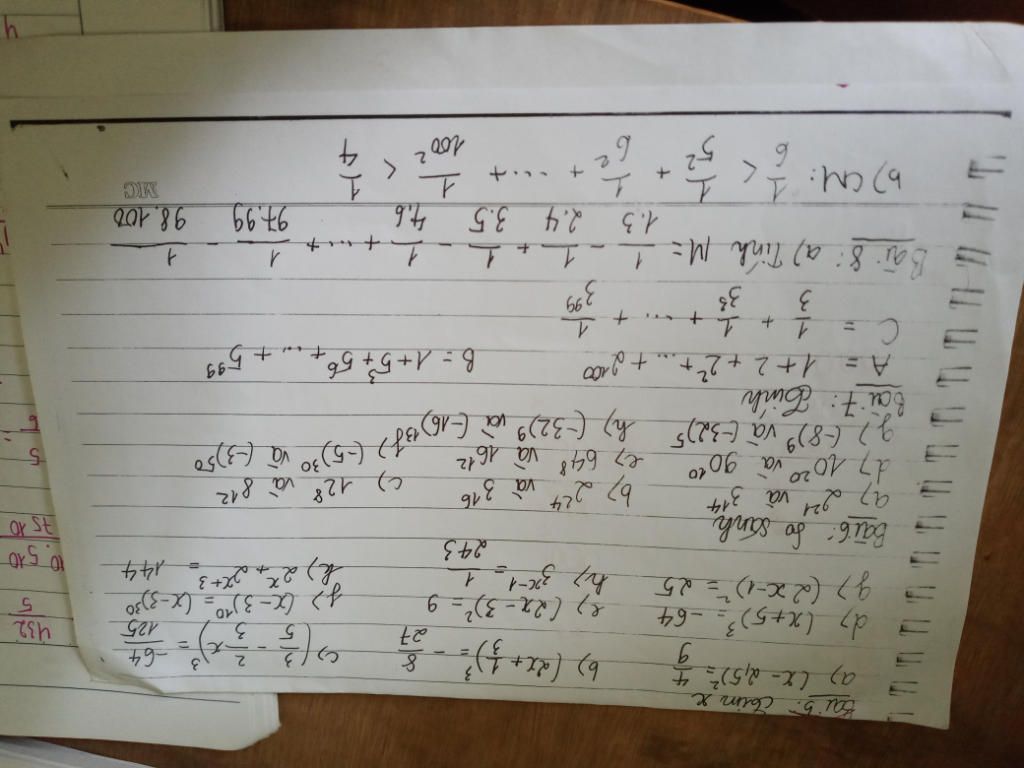 Bài 5: Tìm x
a) (x - 2,5)² = 4/9 b) (2x + 1/3)³ = - 8/27 c) (3/5 - 2/3 x)³ = -64/125
d) (x + 5)³ = -64 e) (2x - 3)² = 9 f) (x - 3)¹⁰ = (x - 3)³⁰
g) (2x - 1)² = 25 h) 3ˣ⁻¹ = 1/243 k) 2ˣ + 2ˣ⁺³ = 144
Bài 6: So sánh
a) 2²¹ và 3¹⁴ b) 2²⁴ và 3¹⁶ c) 12⁸ và 8¹²
d) 10²⁰ và 90¹⁰ e) 64⁸ và 16¹² f) (-5)³⁰ và (-3)⁵⁰
g) (-8)⁹ và (-32)⁵ h) (-32)⁹ và (-16)¹³
Bài 7: Tính
A = 1 + 2 + 2² + ... + 2¹⁰⁰ B = 1 + 5³ + 5⁶ + ... + 5⁹⁹
C = 1/3 + 1/3³ + ... + 1/3⁹⁹
Bài 8: a) Tính M = 1/1.3 - 1/2.4 + 1/3.5 - 1/4.6 + ... + 1/97.99 - 1/98.100
b) CM: 1/6 < 1/5² + 1/6² + ... + 1/100² < 1/4
MIC
432/5
10.510
7510
5
6
=